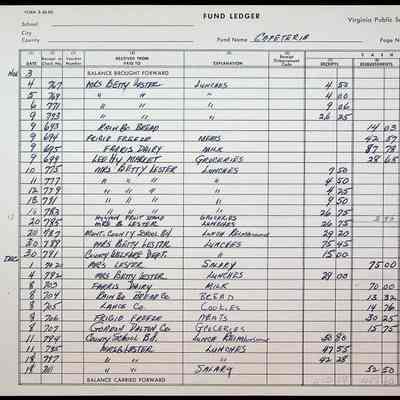 FORM
FUND LEDGER
Virginia Public S
School
City
County
Fund Name CAFETERIA
Page N
CASH
DATE Receipt or Check No. Voucher Number RECEIVED FROM PAID TO EXPLANATION Receipt Disbursement Code RECEIPTS DISBURSEMENTS
Nov 3 BALANCE BROUGHT FORWARD
4 767 MRS BETTY LESTER LUNCHES 4 50
5 769 " " " 4 00
6 771 " " " 9 06
9 773 " " " 26 25
9 693 RAINBO BREAD 14 03
9 694 FRIGID FREEZE MEATS 42 59
9 695 FARRIS DAIRY MILK 87 78
9 699 LEE HY MARKET GROCERIES 28 65
10 775 MRS BETTY LESTER LUNCHES 7 50
11 777 " " " 4 50
12 779 " " " 4 25
13 781 " " " 9 50
16 783 " " " 26 75
GROCERIES
20 785 MRS B. LESTER LUNCHES 26 75
20 787 MONT. COUNTY SCHOOL BD. LUNCH REIMBURSEMENT 29 20
30 789 MRS BETTY LESTER LUNCHES 75 45
30 791 COUNTY WELFARE DEPT. " 15 00
DEC 1 702 MRS LESTER SALARY 75 00
4 792 MRS BETTY LESTER LUNCHES 28 00
8 703 FARRIS DAIRY MILK 70 00
8 704 RAINBO BREAD CO BREAD 13 32
8 705 LANCE CO. COOKIES 14 76
8 706 FRIGID FREEZE MEATS 30 25
8 707 GORDON DALTON CO. GROCERIES 15 75
11 794 COUNTY SCHOOL BD. LUNCH REIMBURSE 50 80
11 795 MRS B LESTER LUNCHES 47 55
18 797 " " " 42 28
18 711 " " SALARY 52 50
BALANCE CARRIED FORWARD